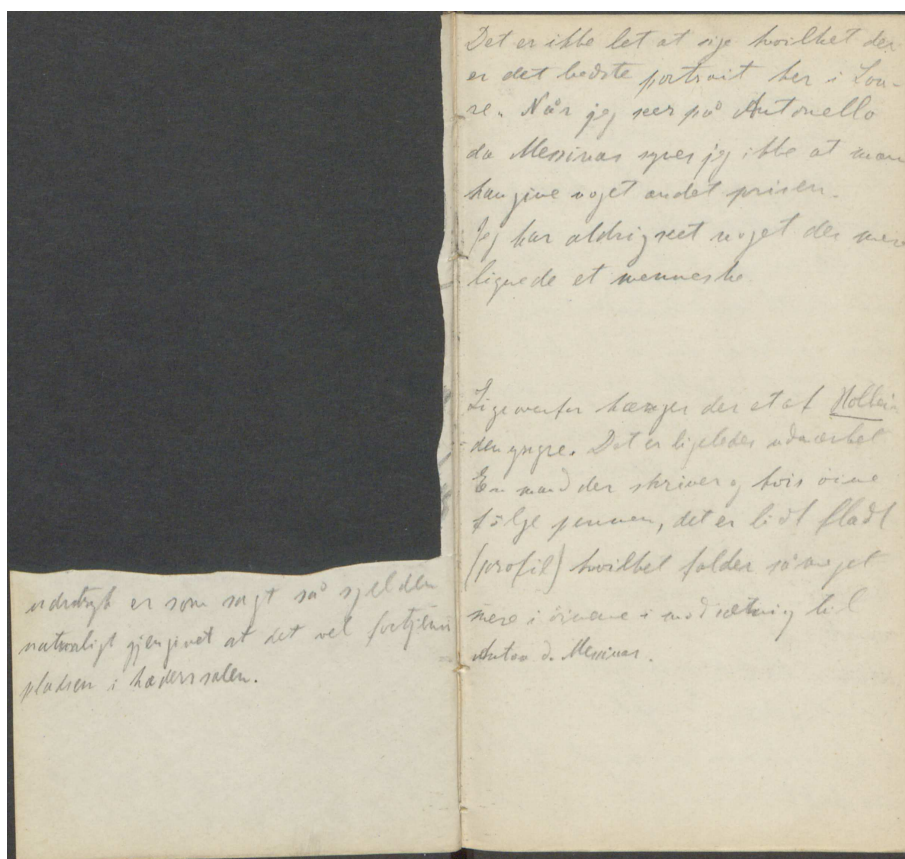 udtryk er som sagt så sjelden
naturligt gjengivet at det vel fortjener
pladsen i hæderssalen.
Det er ikke let at sige hvilket der
er det bedste portrait her i Lou-
re. Når jeg seer på Antonello
da Messinas synes jeg ikke at man
kan give noget andet prisen.
Jeg har aldrig seet noget der mere
lignede et menneske.
Ligeoverfor hænger der et af Holbein
den yngre. Det er ligeledes udmærket
En mand der skriver og hvis öine
fölge pennen, det er lidt fladt
(profil) hvilket falder så meget
mere i öinene i modsætning til
Anton d. Messinas.